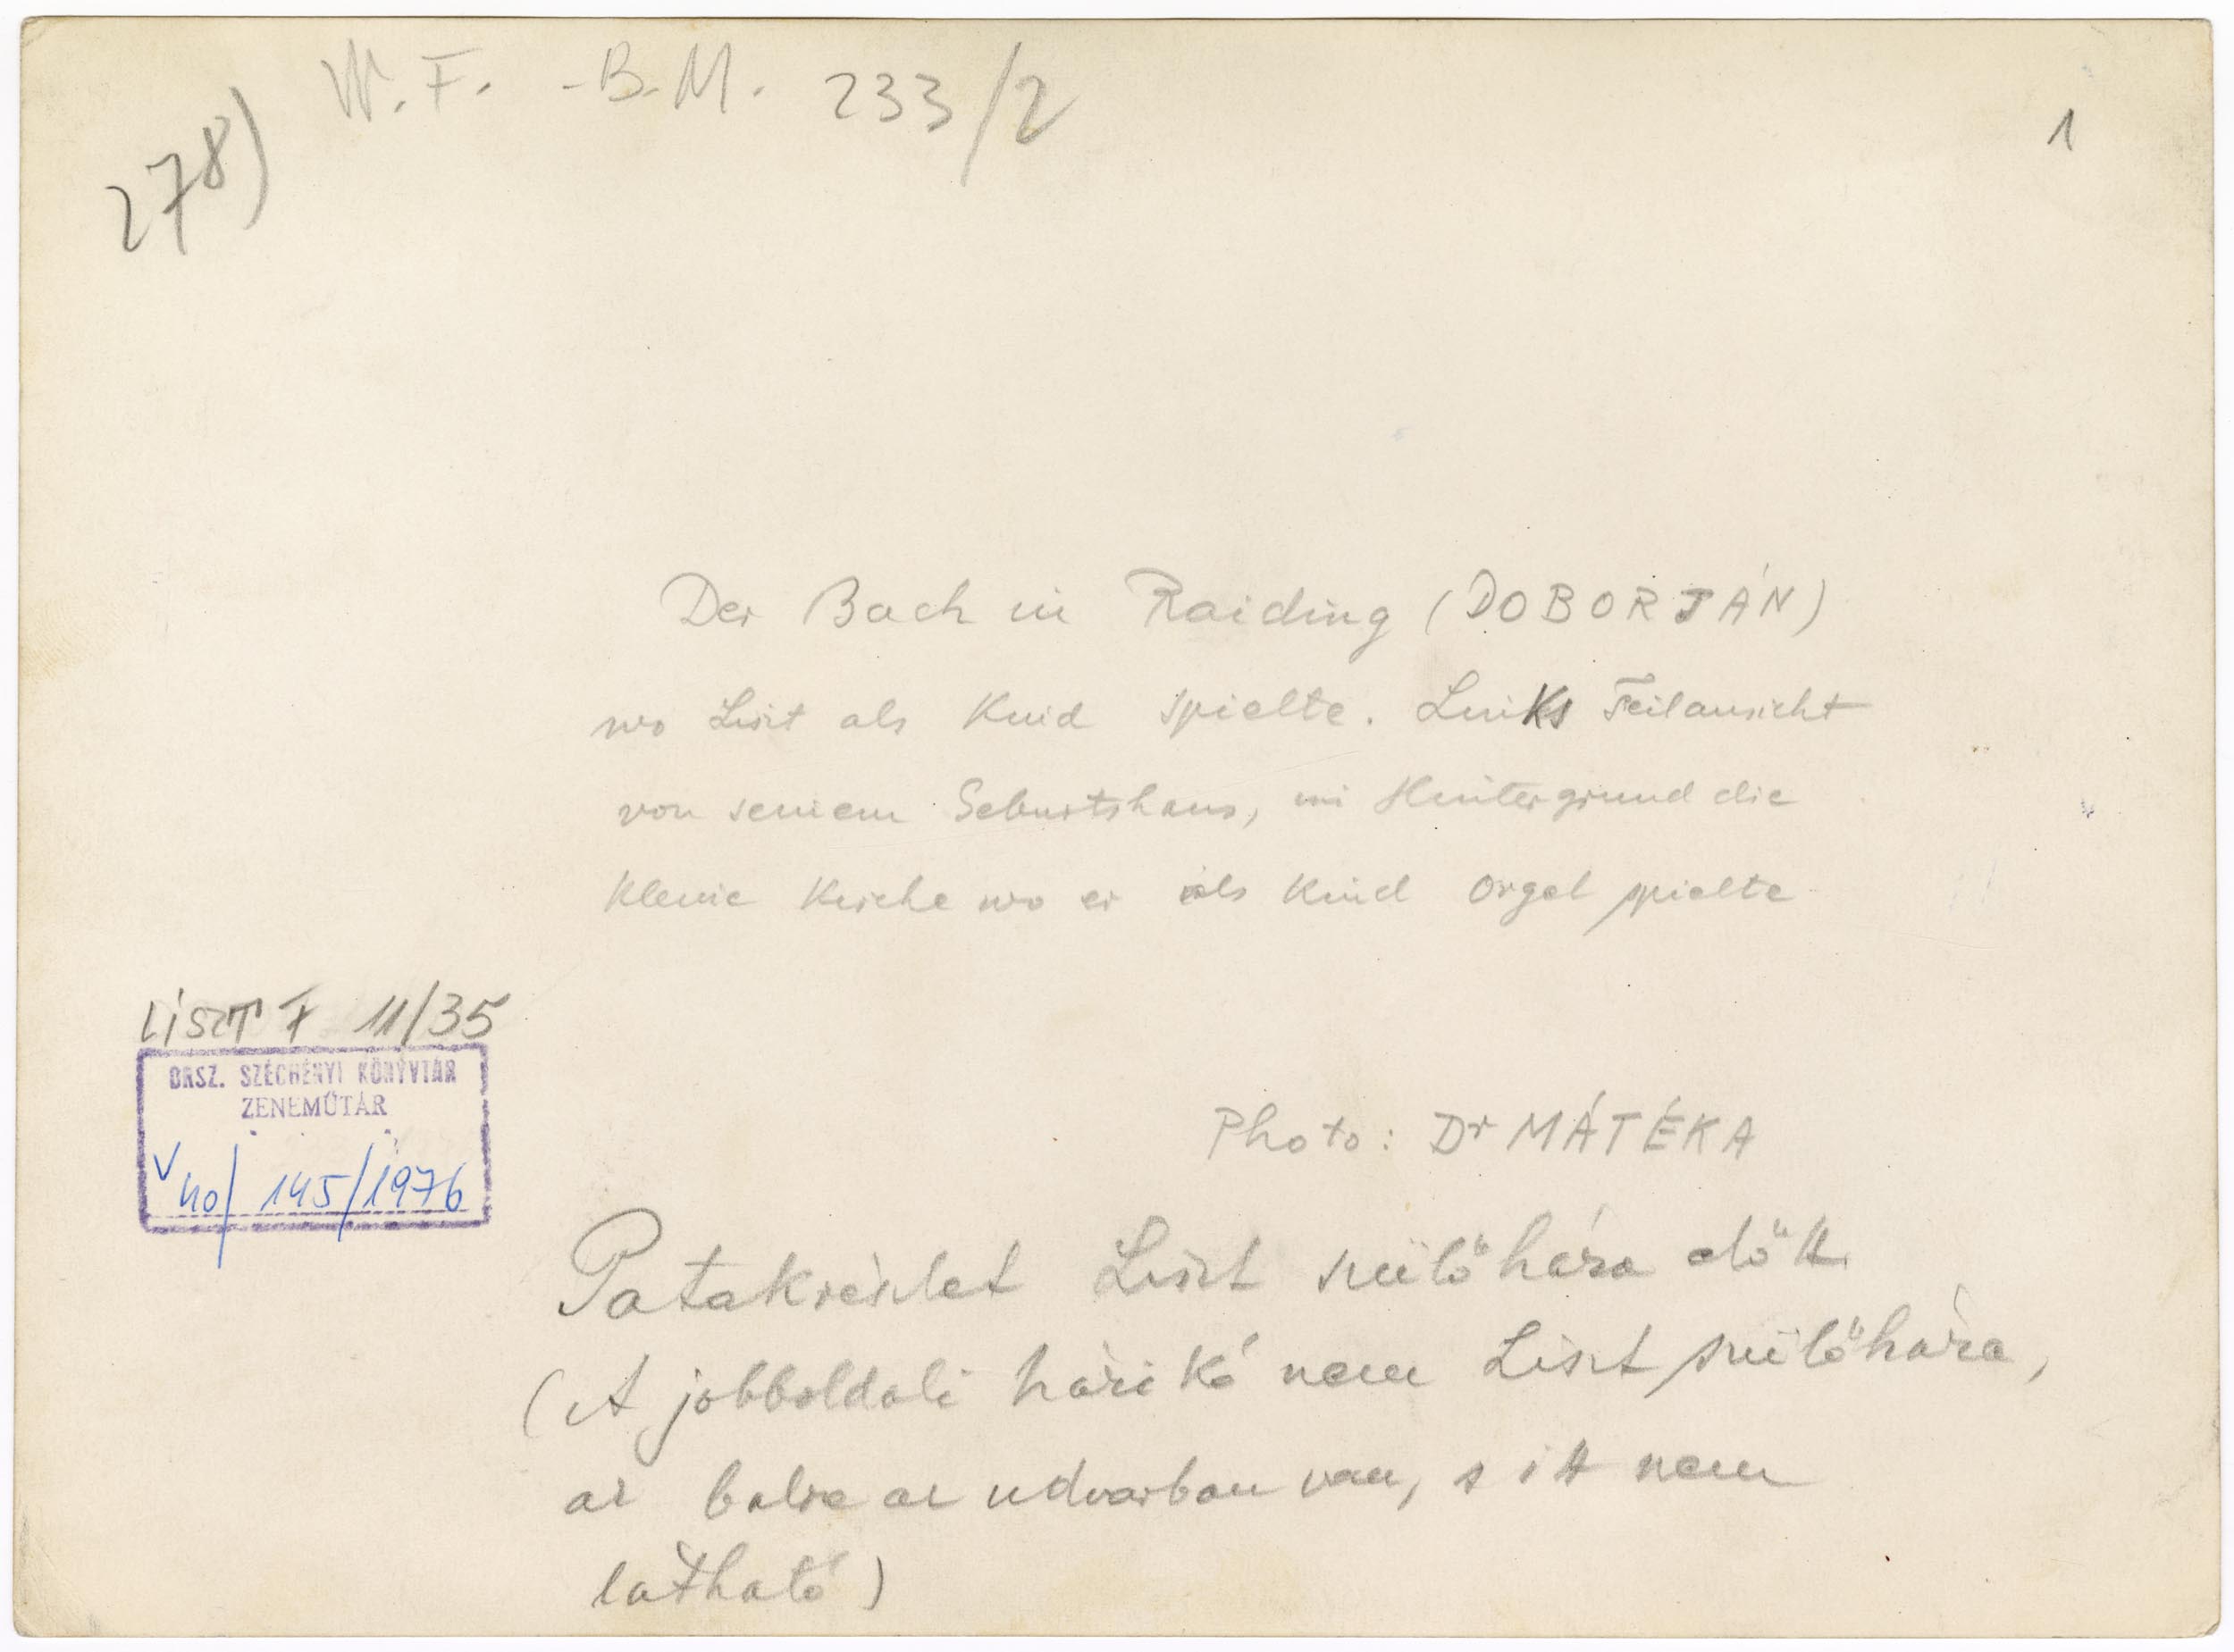 W. F. - B. M. 233/2
278)
1
Der Bach in Raiding (DOBORJÁN)
wo Liszt als Kind spielte. Links Teilansicht
von seinem Geburtshaus, im Hintergrund die
Kleine Kirche wo er als Kind Orgel spielte
LISZT F 11/35
ORSZ. SZÉCHÉNYI KÖNYVTÁR
ZENEMŰTÁR
145/1976
Photo: Dr MÁTÉKA
Patakrészlet Liszt szülőháza előtt
(A jobboldali házikó nem Liszt szülőháza,
az balra az udvarban van, s itt nem
látható)